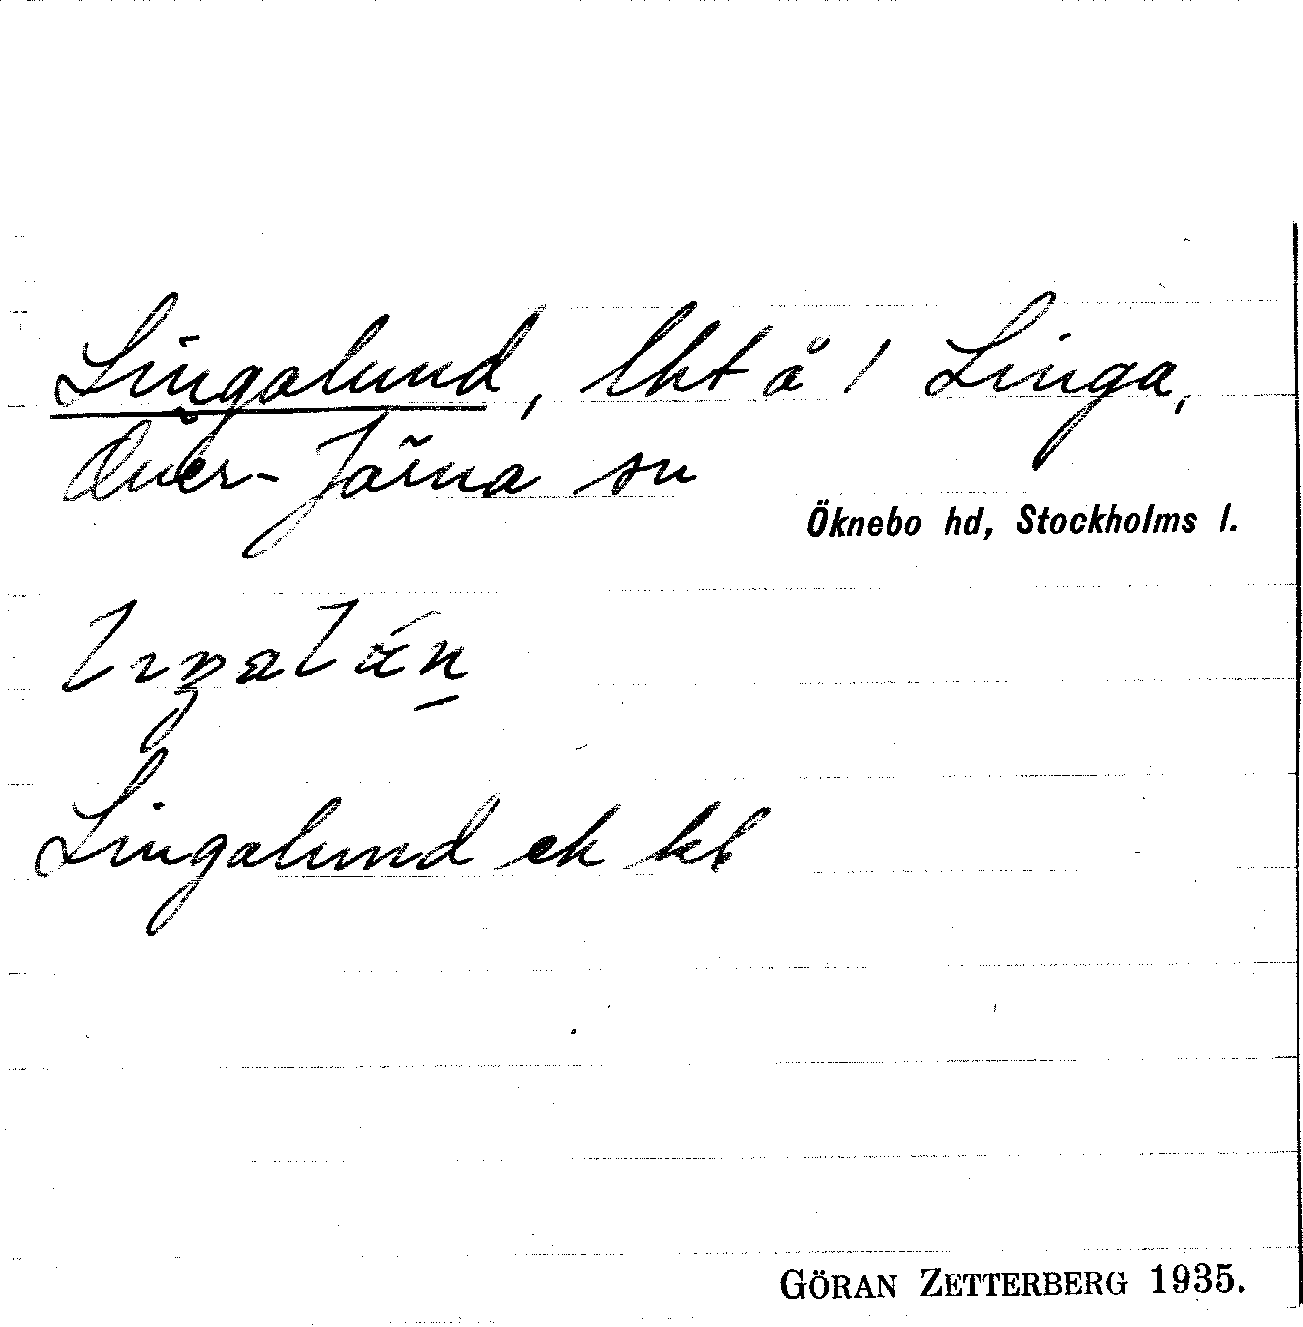 Lingalund, lht å 1 Linga,
Över-Järna sn
Öknebo hd, Stockholms l.
Lingalund ek kb
GÖRAN ZETTERBERG 1935.